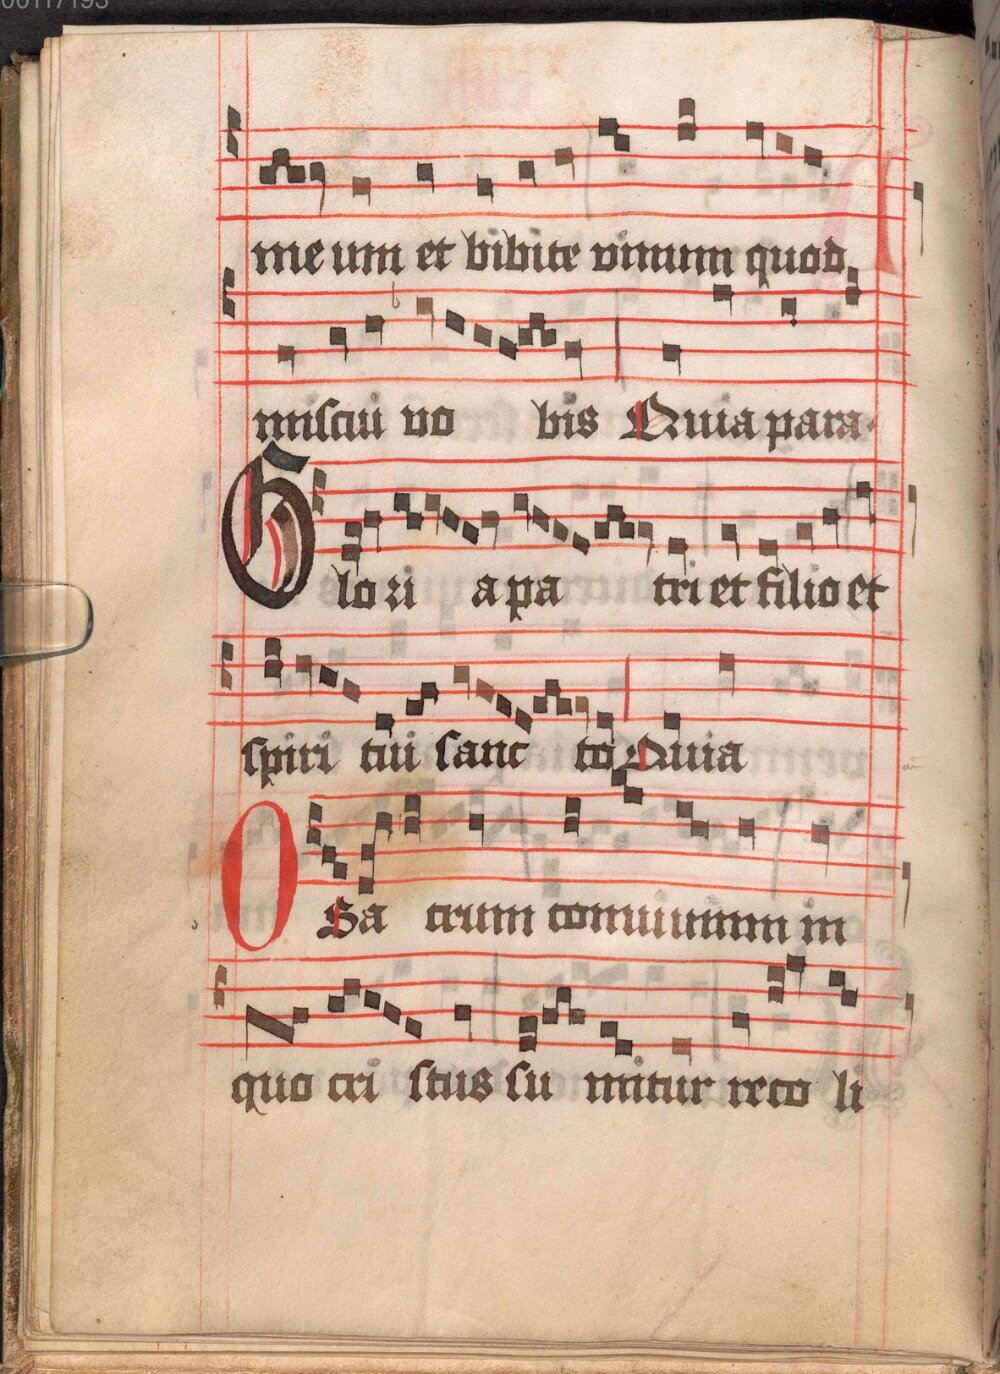 00117193
me um et bibite vinum quod
misciu vo bis Quia para
Glori a pa tri et filio et
spiri tui sanc to Quia
O Sa crum conuiuium in
quo cri stus su mitur reco li